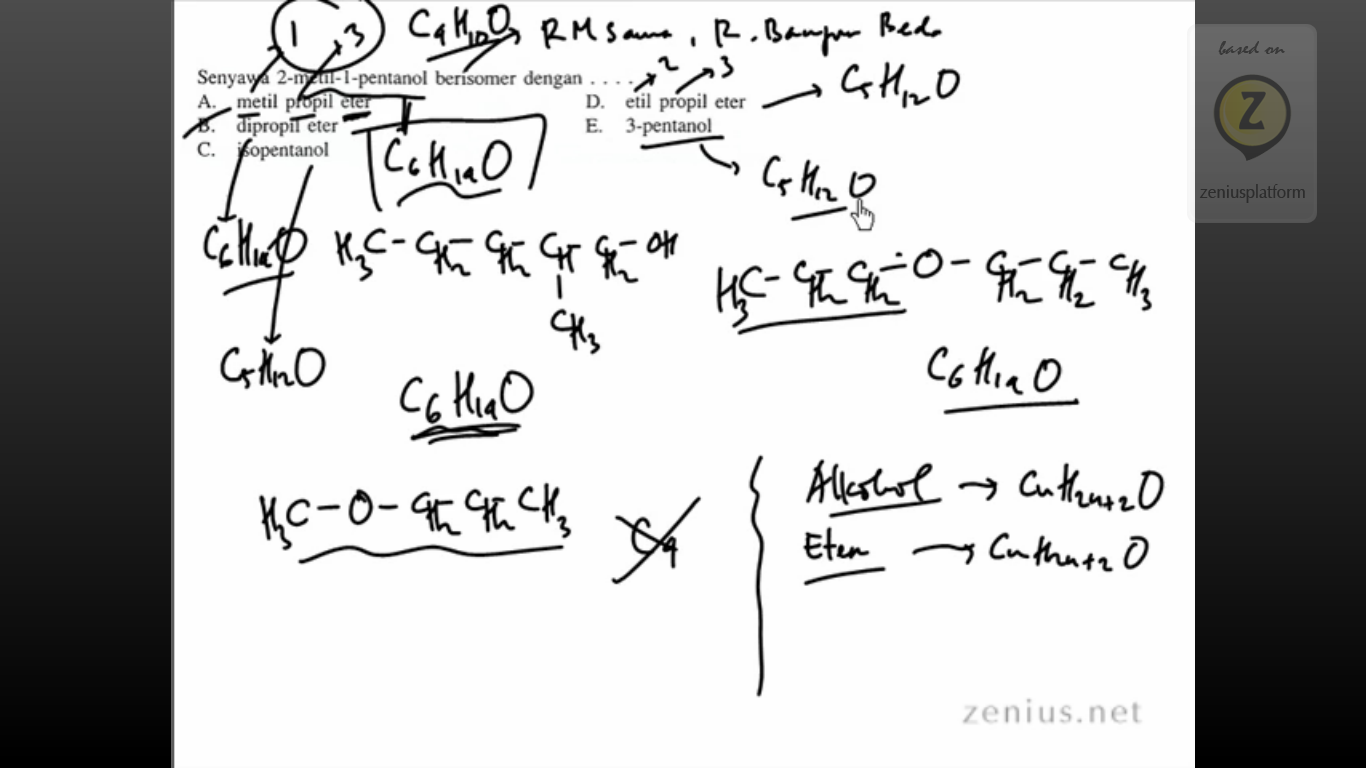 1 3 C4H10O → RM Sama, R. Bangun Beda
Senyawa 2-metil-1-pentanol berisomer dengan . . . .
A. metil propil eter
B. dipropil eter
C. isopentanol
D. etil propil eter
E. 3-pentanol
2 3
C5H12O
C6H14O
C5H12O
C6H14O
H3C - CH2 - CH2 - CH - CH2 - OH
CH3
H3C - CH2 - CH2 - O - CH2 - CH2 - CH3
C5H12O
C6H14O
C6H14O
H3C - O - CH2 - CH2 CH3
C4
Alkohol → CnH2n+2O
Eter → CnH2n+2O
based on
Z
zeniusplatform
zenius.net